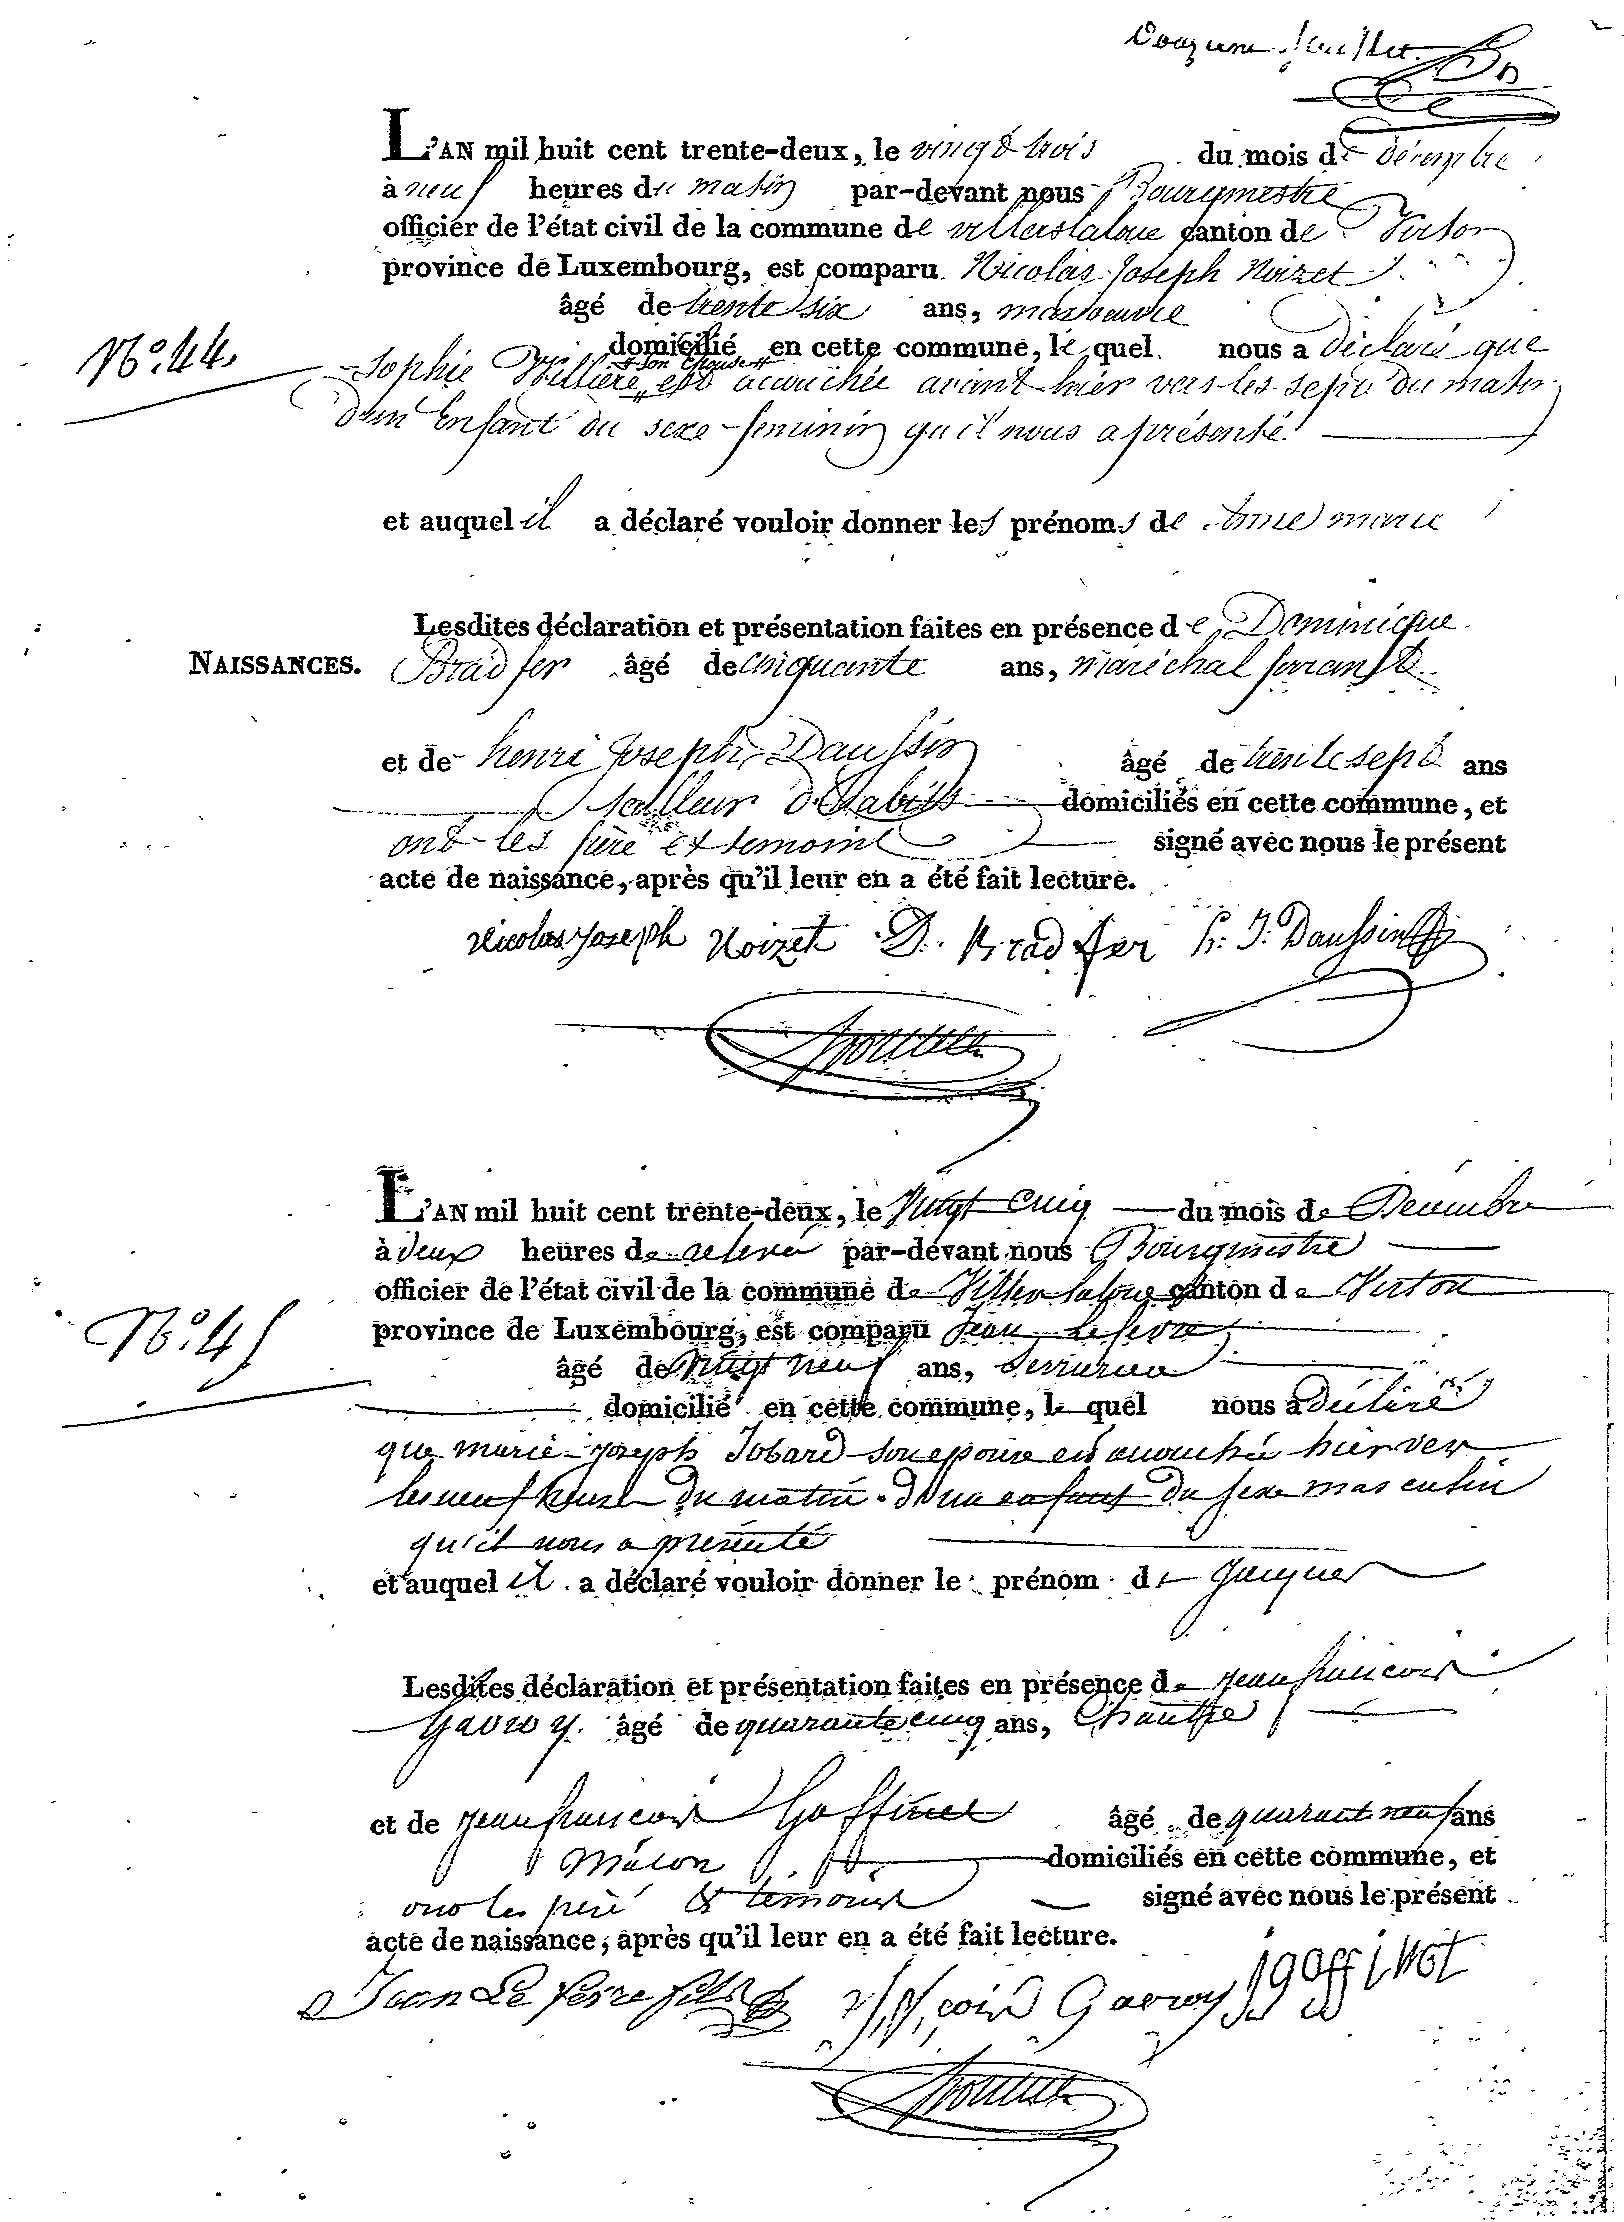 Douzieme feuillet.
L'AN mil huit cent trente-deux, le vingt trois du mois de décembre
à neuf heures du matin par-devant nous Bourgmestre
officier de l'état civil de la commune de villerslaloue canton de Virton
province de Luxembourg, est comparu Nicolas Joseph Noizet
âgé de trente six ans, manoeuvre
N.º 44. domicilié en cette commune, le quel nous a déclaré que
son épouse
Sophie est accouchée avant hier vers les sept du matin
d'un Enfant du sexe feminin qu'il nous a présenté
et auquel il a déclaré vouloir donner les prénoms de Anne marie
Lesdites déclaration et présentation faites en présence de Dominique
NAISSANCES. Bradfer âgé de cinquante ans, maréchal ferrant
et de henri Joseph Daussin âgé de trente sept ans
tailleur d'habits domiciliés en cette commune, et
ont les père et temoins signé avec nous le présent
acte de naissance, après qu'il leur en a été fait lecture.
Nicolas Joseph Noizet D. Bradfer h. J. Daussin
L'AN mil huit cent trente-deux, le Vingt cinq du mois de Decembre
à deux heures de relevée par-devant nous Bourgmestre
officier de l'état civil de la commune de Villerslaloue canton de Virton
province de Luxembourg, est comparu Jean Lefevre
N.º 45 âgé de vingt neuf ans, Serrurier
domicilié en cette commune, le quel nous a déclaré
que marie Joseph Jobard son epouse est accouchée hier vers
les neuf heures du matin d'un enfant du sexe masculin
qu'il nous a présenté
et auquel il a déclaré vouloir donner le prénom de Jacques
Lesdites déclaration et présentation faites en présence de jean françois
Gavroy âgé de quarante cinq ans, Chantre
et de jean françois Goffinet âgé de quarante neuf ans
Maçon domiciliés en cette commune, et
ont les père & témoins signé avec nous le présent
acte de naissance, après qu'il leur en a été fait lecture.
Jean Le fevre fils j f çois Gavroy j f goffinet